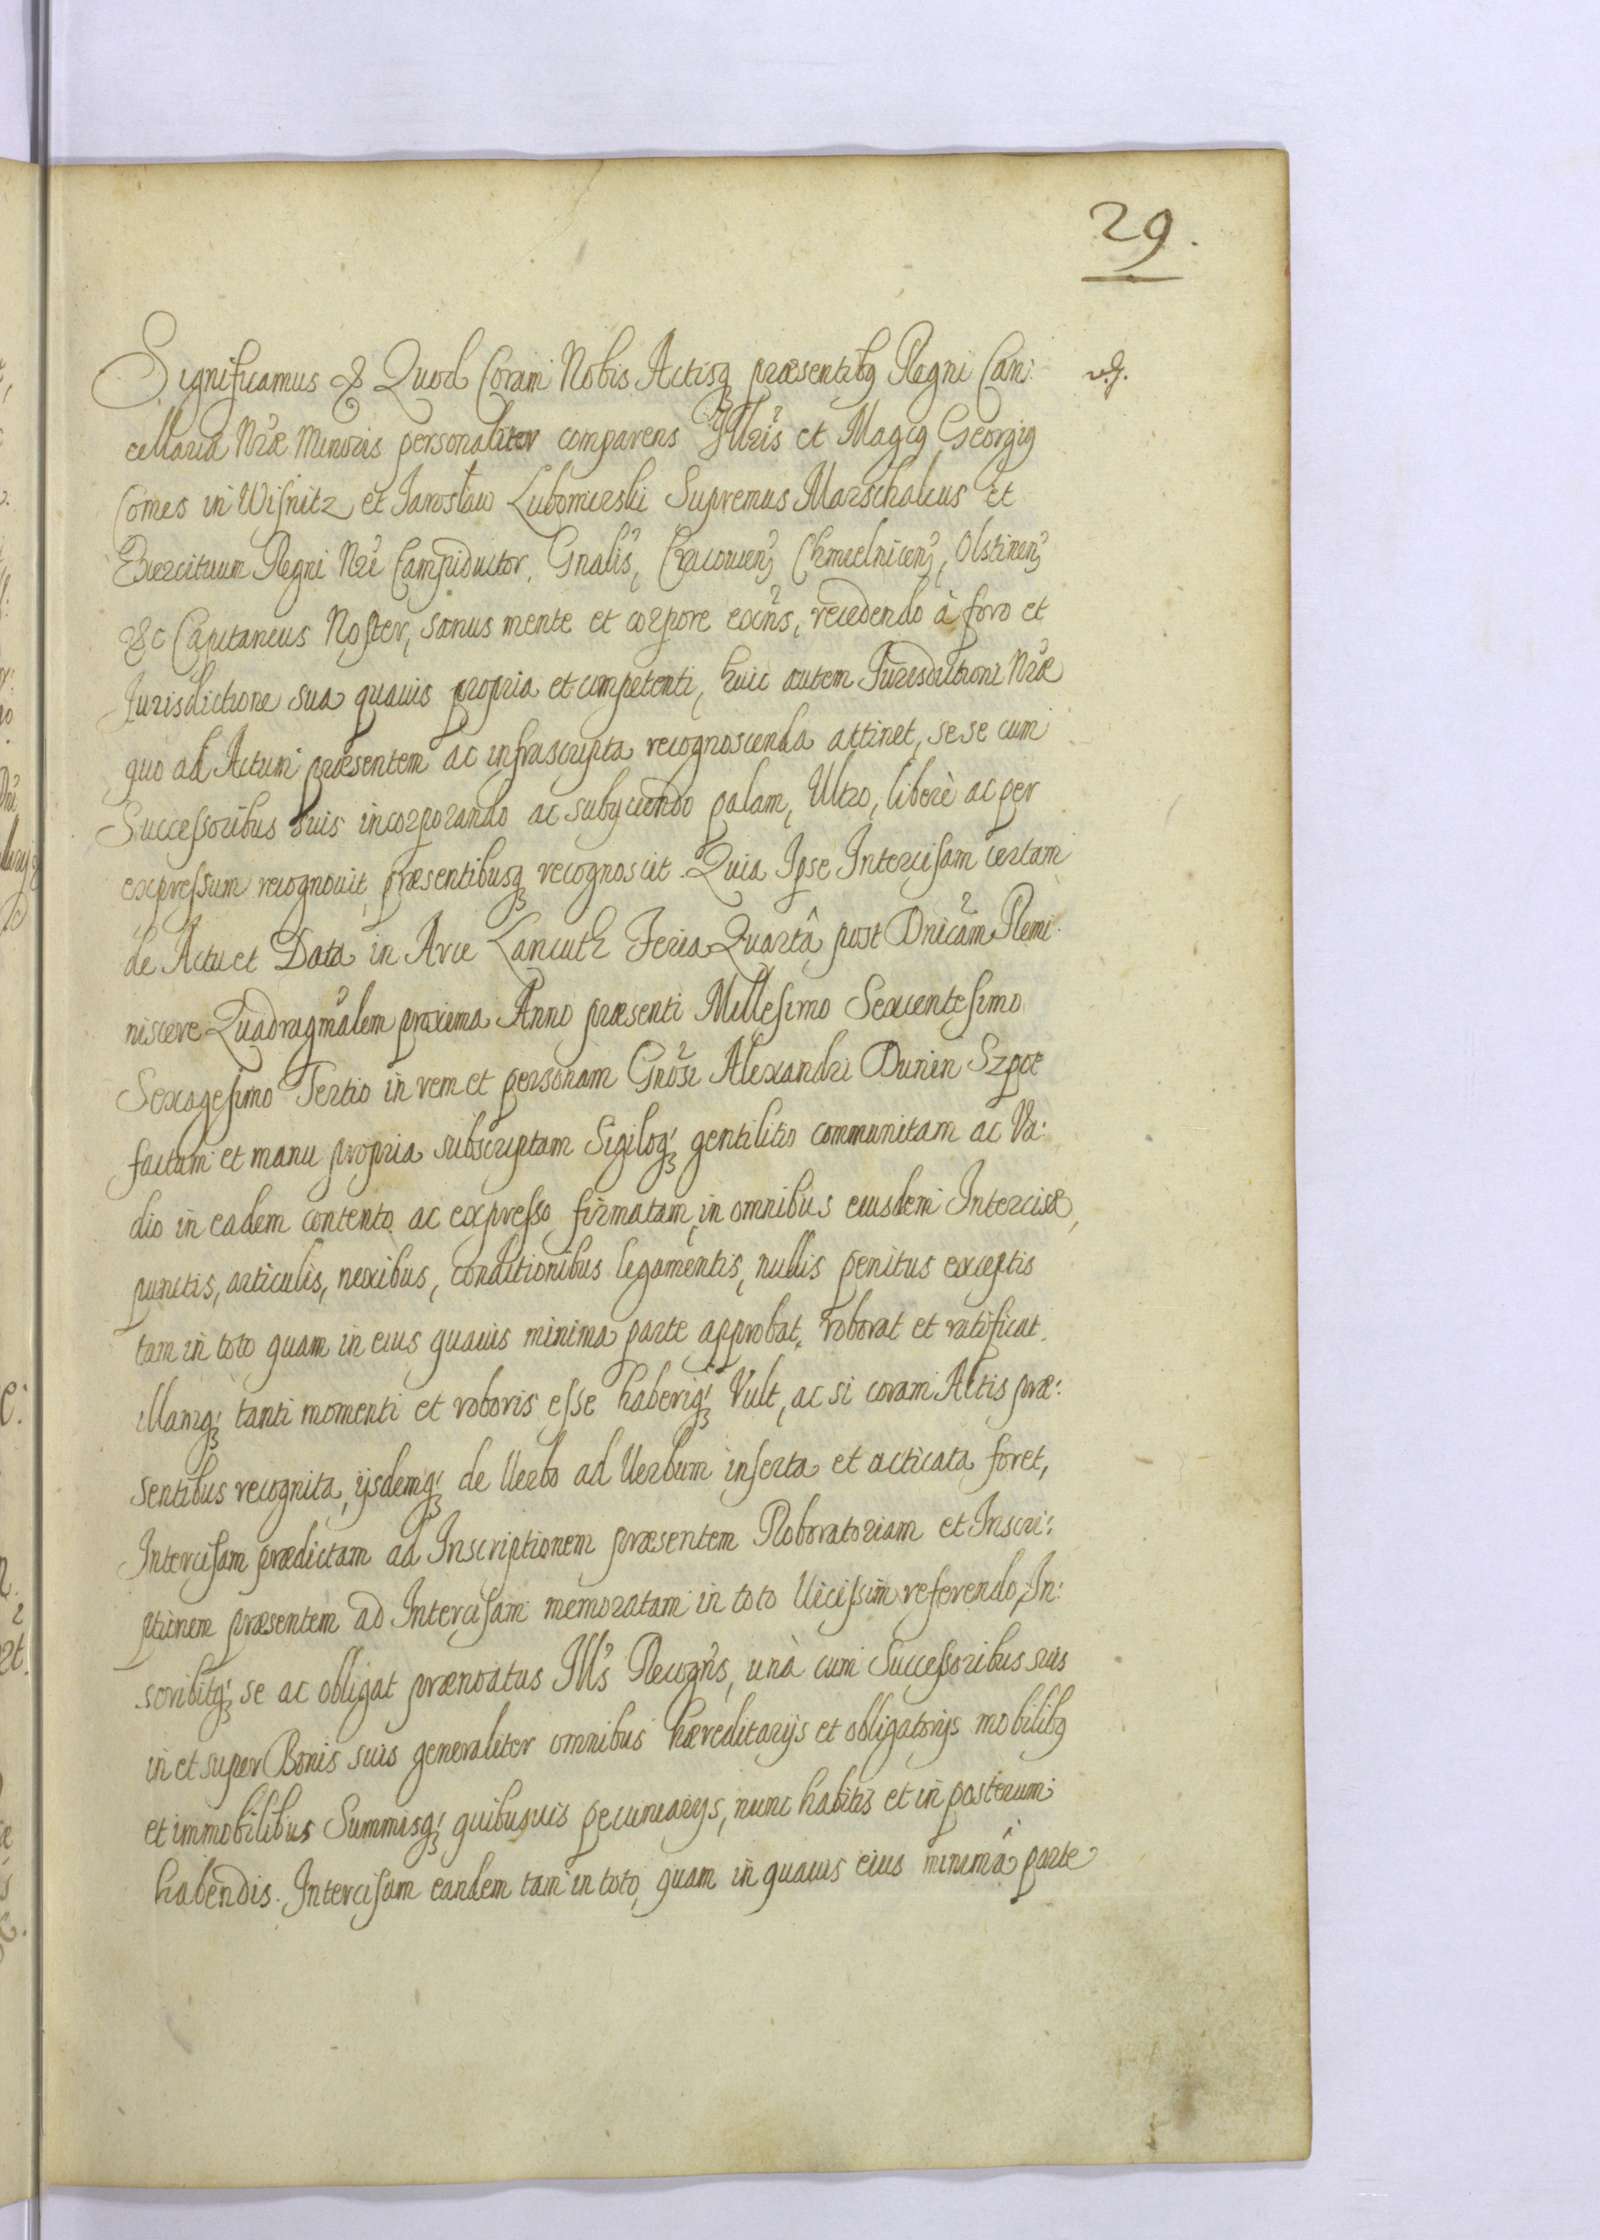 29.
Significamus & Quod Coram Nobis Actisq₃ præsentibq Regni Can:
cellariæ Nræ Minoris personaliter comparens Illris et Magcq Georgiq
Comes in Wisnitz et Jarosław Lubomirski Supremus Marschalcus et
Exercituum Regni Nri Campiductor, Gnalis, Cracovien, Chmielnicen, Olstinen
&c Capitaneus Noster, sanus mente et corpore exns, recedendo à foro et
Jurisdictione sua quavis propria et competenti, huic autem Jurisdictioni Nræ
quo ad Actum præsentem ac infrascripta recognoscenda attinet, sese cum
Successoribus suis incorporando ac subyciendo palam, Ultro, liberè ac per
expressum recognovit, præsentibusq₃ recognoscit. Quia Ipse Intercisam certam
de Actu et Data in Arce Lancuth Feria Quartâ post Dnicam Remi:
niscere Quadragmalem proxima Anno præsenti Millesimo Sexcentesimo
Sexagesimo Tertio in rem et personam Gnosi Alexandri Dunin Szpot
factam et manu propria subscriptam Sigiloq₃ gentilitio communitam ac Va:
dio in eadem contento ac expresso firmatam, in omnibus eiusdem Intercisæ,
punctis, articulis, nexibus, conditionibus legamentis, nullis penitus exceptis
tam in toto quam in eius quavis minima parte approbat, roborat et ratificat.
illamq₃ tanti momenti et roboris esse haberiq₃ Vult, ac si coram Actis præ:
sentibus recognita, ijsdemq₃ de Verbo ad Verbum inserta et acticata foret,
Intercisam prædictam ad Inscriptionem præsentem Roboratoriam et Inscri:
ptionem præsentem ad Intercisam memoratam in toto Vicissim referendo, In:
scribitq₃ se ac obligat prænoatus Ills Recogns, unà cum Successoribus suis
in et super Bonis suis generaliter omnibus hæreditarijs et obligatorijs mobilibq
et immobilibus Summisq₃ quibusvis pecuniarys, nunc habitis et in posterum
habendis. Intercisam eandem tam in toto, quam in quavis eius minimâ parte